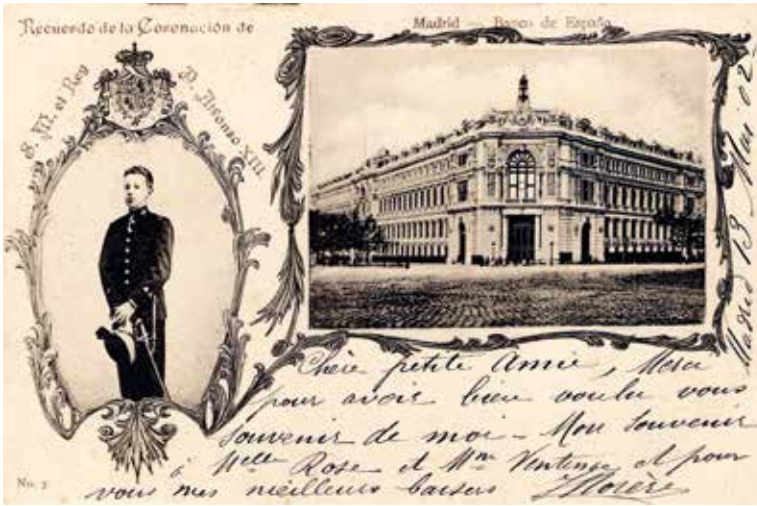 Recuerdo de la Coronación de
S. M. el Rey
D. Alfonso XIII.
Madrid — Banco de España
Madrid 13 Mai 02
Chère petite Amie, Merci
pour avoir bien voulu vous
souvenir de moi – Mon souvenir
à Melle Rose et Mme et pour
vous mes meilleurs baisers
No. 3